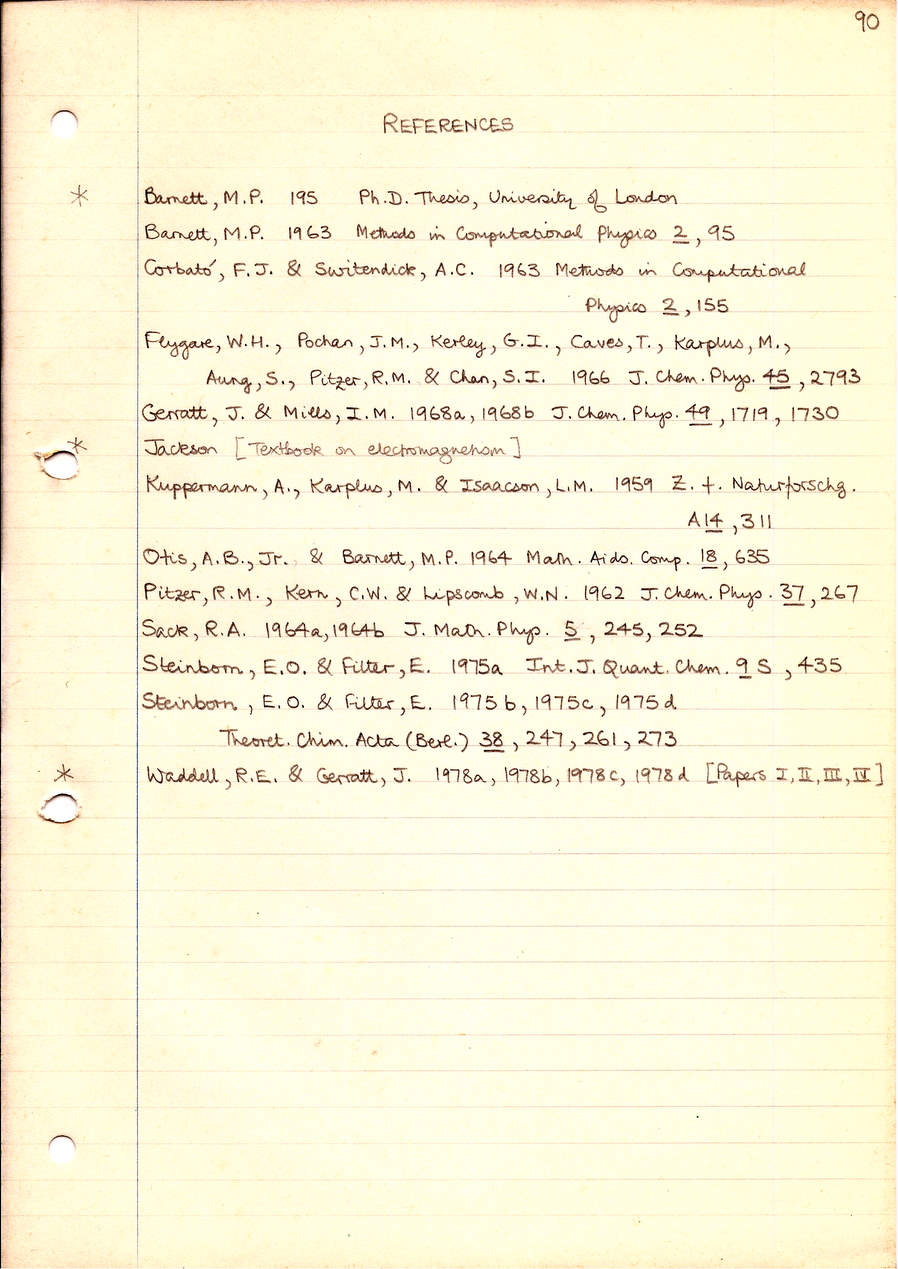 90
REFERENCES
* Barnett, M.P. 195 Ph.D. Thesis, University of London
Barnett, M.P. 1963 Methods in Computational Physics 2, 95
Corbató, F.J. & Switendick, A.C. 1963 Methods in Computational
Physics 2, 155
Flygare, W.H., Pochan, J.M., Kerley, G.I., Caves, T., Karplus, M.,
Aung, S., Pitzer, R.M. & Chan, S.I. 1966 J. Chem. Phys. 45, 2793
Gerratt, J. & Mills, I.M. 1968a, 1968b J. Chem. Phys. 49, 1719, 1730
* Jackson [Textbook on electromagnetism]
Kuppermann, A., Karplus, M. & Isaacson, L.M. 1959 Z. f. Naturforschg.
A14, 311
Otis, A.B., Jr. & Barnett, M.P. 1964 Math. Aids. Comp. 18, 635
Pitzer, R.M., Kern, C.W. & Lipscomb, W.N. 1962 J. Chem. Phys. 37, 267
Sack, R.A. 1964a, 1964b J. Math. Phys. 5, 245, 252
Steinborn, E.O. & Filter, E. 1975a Int. J. Quant. Chem. 9 S, 435
Steinborn, E.O. & Filter, E. 1975b, 1975c, 1975d
Theoret. Chim. Acta (Berl.) 38, 247, 261, 273
* Waddell, R.E. & Gerratt, J. 1978a, 1978b, 1978c, 1978d [Papers I, II, III, IV]